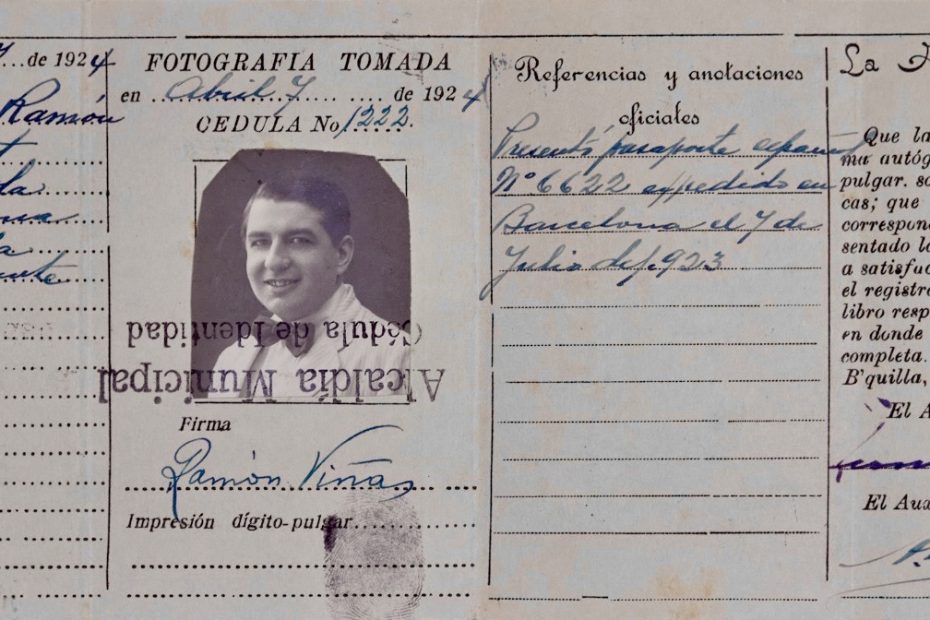 de 1924
Ramón
FOTOGRAFIA TOMADA
en Abril 7 de 1924
CEDULA No 1222
Cédula de Identidad
Alcaldía Municipal
Firma
Ramón Viñas
Impresión dígito-pulgar
Referencias y anotaciones
oficiales
Presentó pasaporte español
Nº 6622 expedido en
Barcelona el 7 de
Julio de 1923
La
Que la
ma autóg
pulgar. so
cas; que
correspon
sentado lo
a satisfac
el registr
libro resp
en donde
completa.
B'quilla,
El A
El Aux